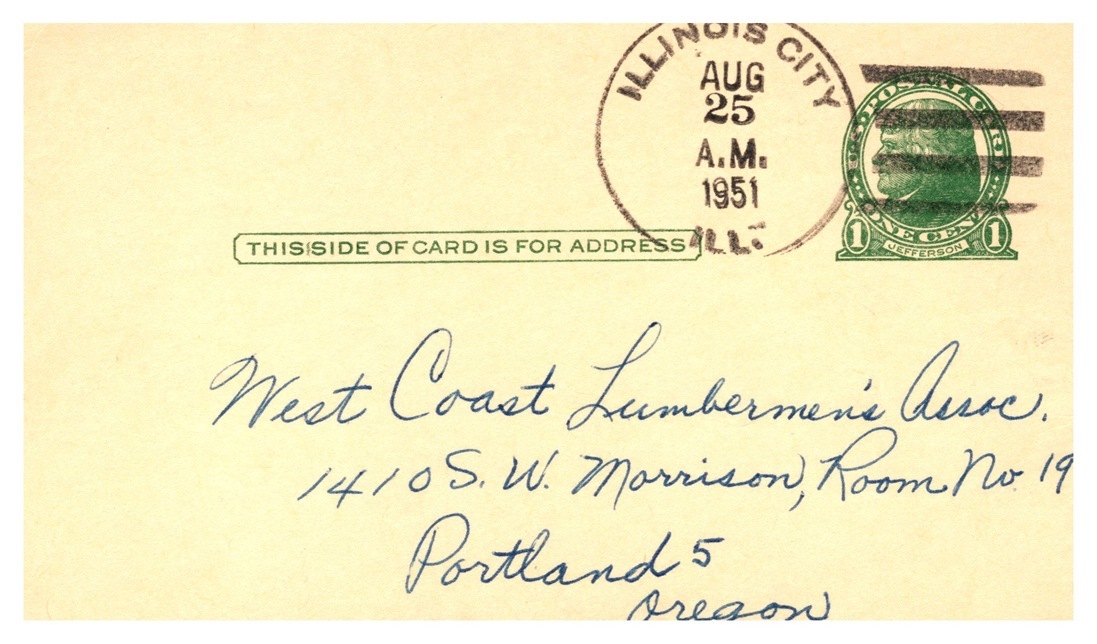 ILLINOIS CITY
AUG
25
A.M.
1951
ILL.
U.S. POSTAL CARD
ONE CENT
1 JEFFERSON 1
THIS SIDE OF CARD IS FOR ADDRESS
West Coast Lumbermen's Assoc.
1410 S. W. Morrison, Room No. 19
Portland 5
Oregon